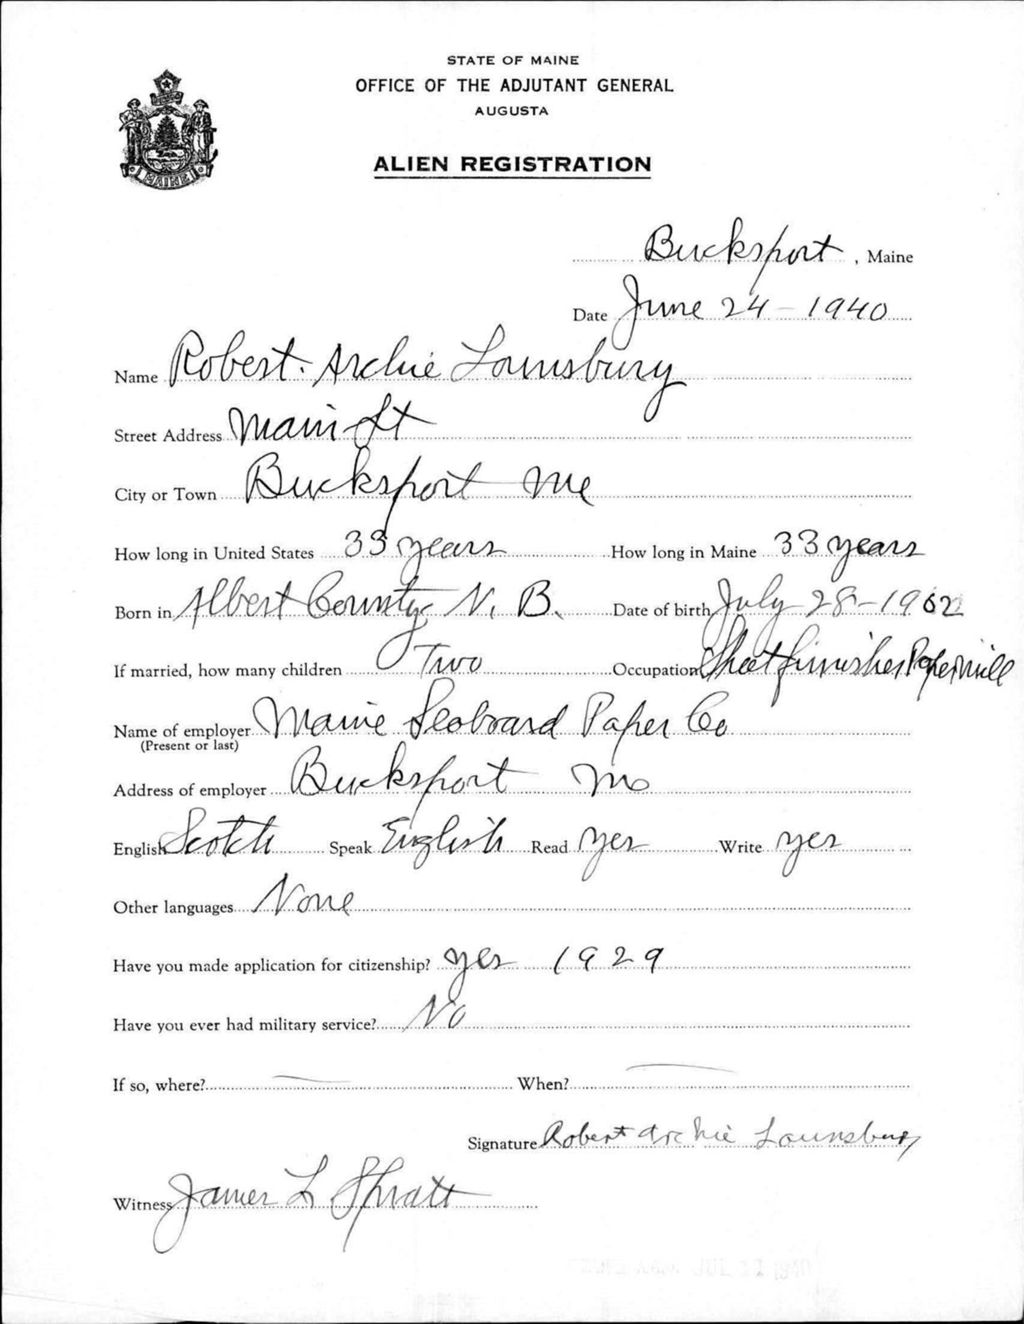 STATE OF MAINE
OFFICE OF THE ADJUTANT GENERAL
AUGUSTA
ALIEN REGISTRATION
MAINE
Bucksport, Maine
Date June 24 - 1940
Name Robert Archie Lounsbury
Street Address Main St
City or Town Bucksport Me
How long in United States 33 years How long in Maine 33 years
Born in Albert County N. B. Date of birth July 28 - 1902
If married, how many children Two Occupation Sheet finisher Paper mill
Name of employer Maine Seaboard Paper Co
(Present or last)
Address of employer Bucksport Me
English Scotch Speak English Read yes Write yes
Other languages None
Have you made application for citizenship? yes 1929
Have you ever had military service? No
If so, where? — When? —
Signature Robert Archie Lounsbury
Witness James L Spratt